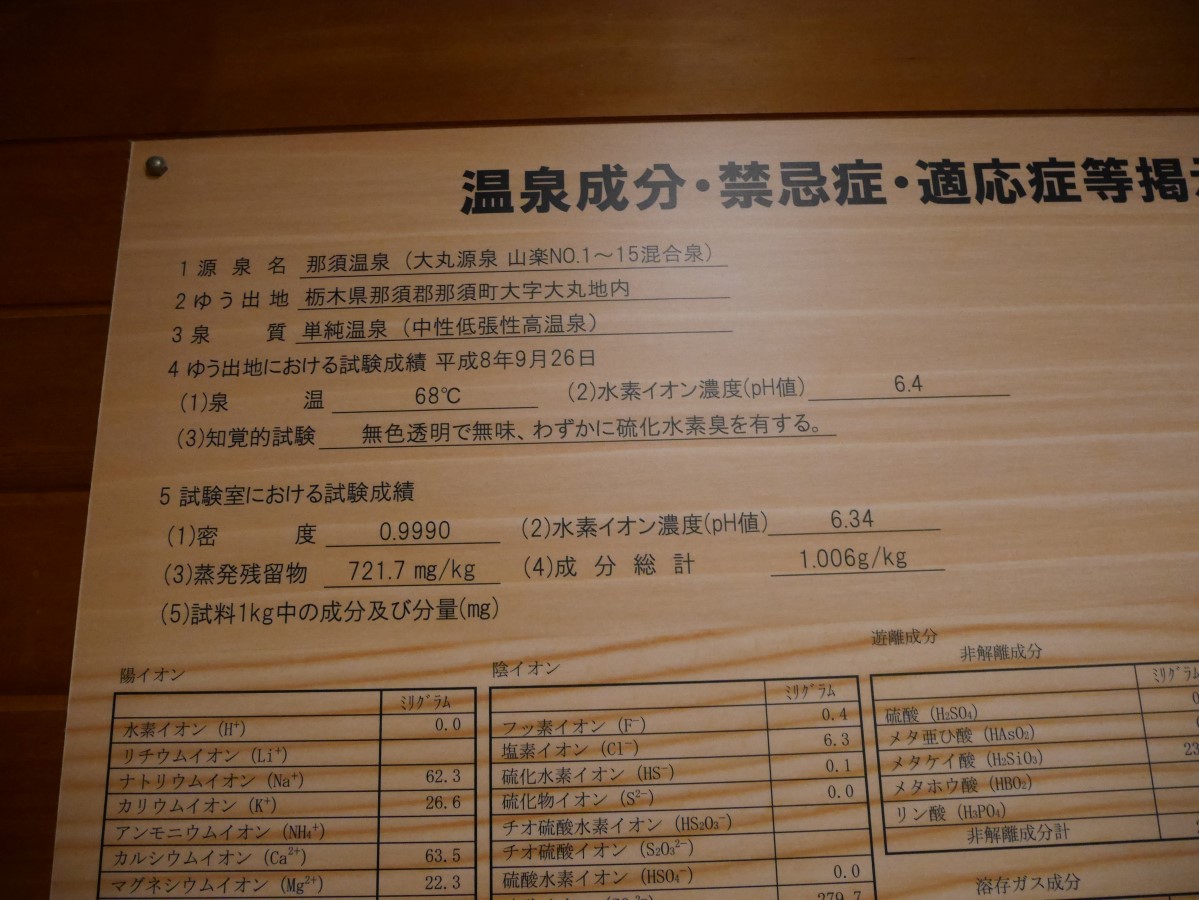 温泉成分・禁忌症・適応症等掲
1 源泉名 那須温泉（大丸源泉 山楽NO.1～15混合泉）
2 ゆう出地 栃木県那須郡那須町大字大丸地内
3 泉質 単純温泉（中性低張性高温泉）
4 ゆう出地における試験成績 平成8年9月26日
(1)泉温 68℃ (2)水素イオン濃度(pH値) 6.4
(3)知覚的試験 無色透明で無味、わずかに硫化水素臭を有する。
5 試験室における試験成績
(1)密度 0.9990 (2)水素イオン濃度(pH値) 6.34
(3)蒸発残留物 721.7 mg/kg (4)成分総計 1.006g/kg
(5)試料1kg中の成分及び分量(mg)
陽イオン
ﾐﾘｸﾞﾗﾑ
水素イオン (H⁺) 0.0
リチウムイオン (Li⁺)
ナトリウムイオン (Na⁺) 62.3
カリウムイオン (K⁺) 26.6
アンモニウムイオン (NH₄⁺)
カルシウムイオン (Ca²⁺) 63.5
マグネシウムイオン (Mg²⁺) 22.3
陰イオン
ﾐﾘｸﾞﾗﾑ
フッ素イオン (F⁻) 0.4
塩素イオン (Cl⁻) 6.3
硫化水素イオン (HS⁻) 0.1
硫化物イオン (S²⁻) 0.0
チオ硫酸水素イオン (HS₂O₃⁻)
チオ硫酸イオン (S₂O₃²⁻)
硫酸水素イオン (HSO₄⁻) 0.0
279.7
遊離成分
非解離成分
ﾐﾘｸﾞﾗﾑ
硫酸 (H₂SO₄)
メタ亜ひ酸 (HAsO₂)
メタケイ酸 (H₂SiO₃) 23
メタホウ酸 (HBO₂)
リン酸 (H₃PO₄)
非解離成分計
溶存ガス成分